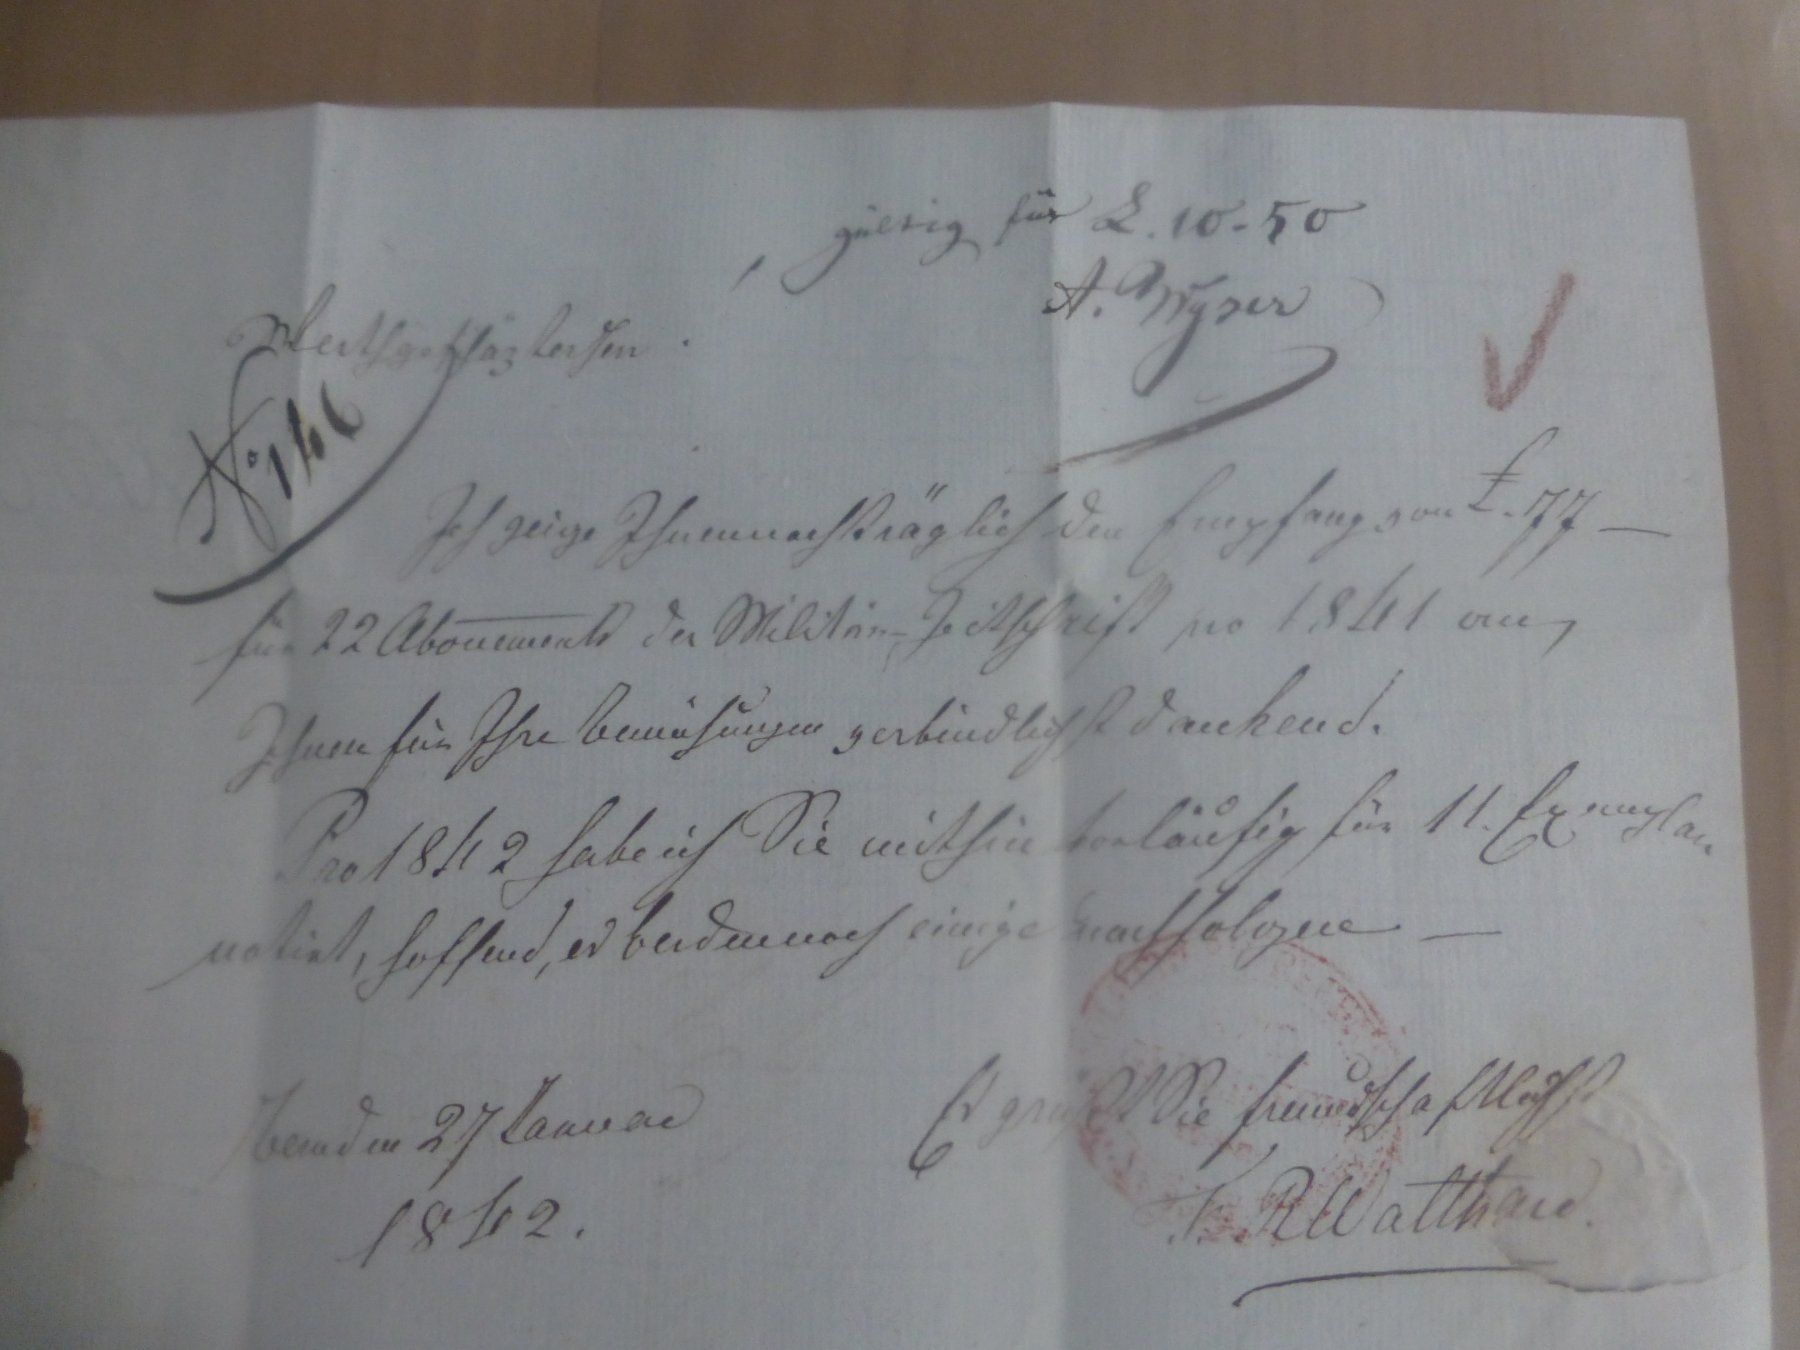 gültig für L. 10.50
A. Wyser
Werthgeschäzter Herr
No 146
Ich zeige Ihnen nachträglich den Empfang von L. 77 —
für 22 Abonements der Militär-Zeitschrift pro 1841 an,
Ihnen für Ihre Bemühungen verbindlichst dankend.
Pro 1842 habe ich Sie mithin vorläufig für 11. Exemplar
notirt, hoffend, es werden noch einige nachfolgen —
Bern den 27 Januar
1842.
Es grüßt Sie freundschaftlichst
R Walthard.